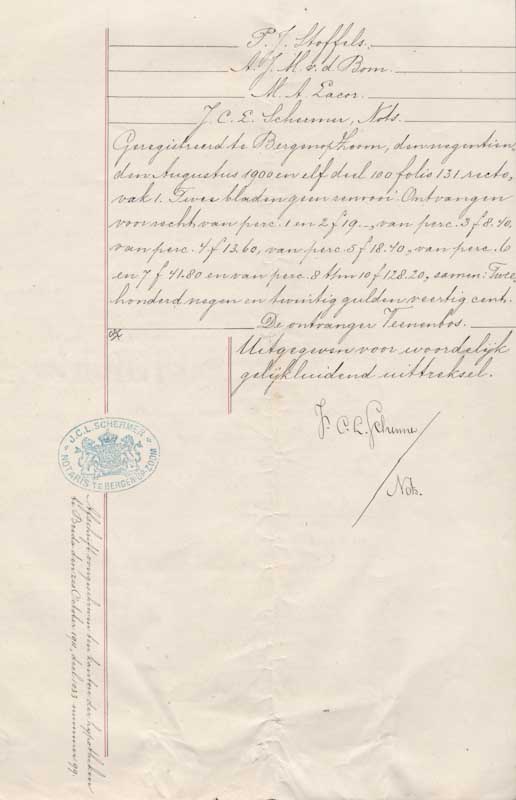 P. J. Stoffels.
A. J. M. v. d. Bom.
M. A. Lacor.
J. C. L. Schermer, Nots.
Geregistreerd te Bergen op Zoom, den negentien
den Augustus 1900 en elf deel 100 folio 131 recto,
vak 1. Twee bladen geen renvooi. Ontvangen
voor recht van perc. 1 en 2 f 19.–, van perc. 3 f 8.40,
van perc. 4 f 13.60, van perc. 5 f 18.40, van perc. 6
en 7 f 41.80 en van perc. 8 t/m 10 f 128.20, samen: Twee
honderd negen en twintig gulden veertig cent.
De ontvanger Teenenbos.
Uitgegeven voor woordelijk
gelijkluidend uittreksel.
J. C. L. Schermer
Nots.
J.C.L. SCHERMER
NOTARIS TE BERGEN OP ZOOM
Afschrift overgeschreven ten kantore der hypotheken
te Breda den October deel 1033 nummer 99.